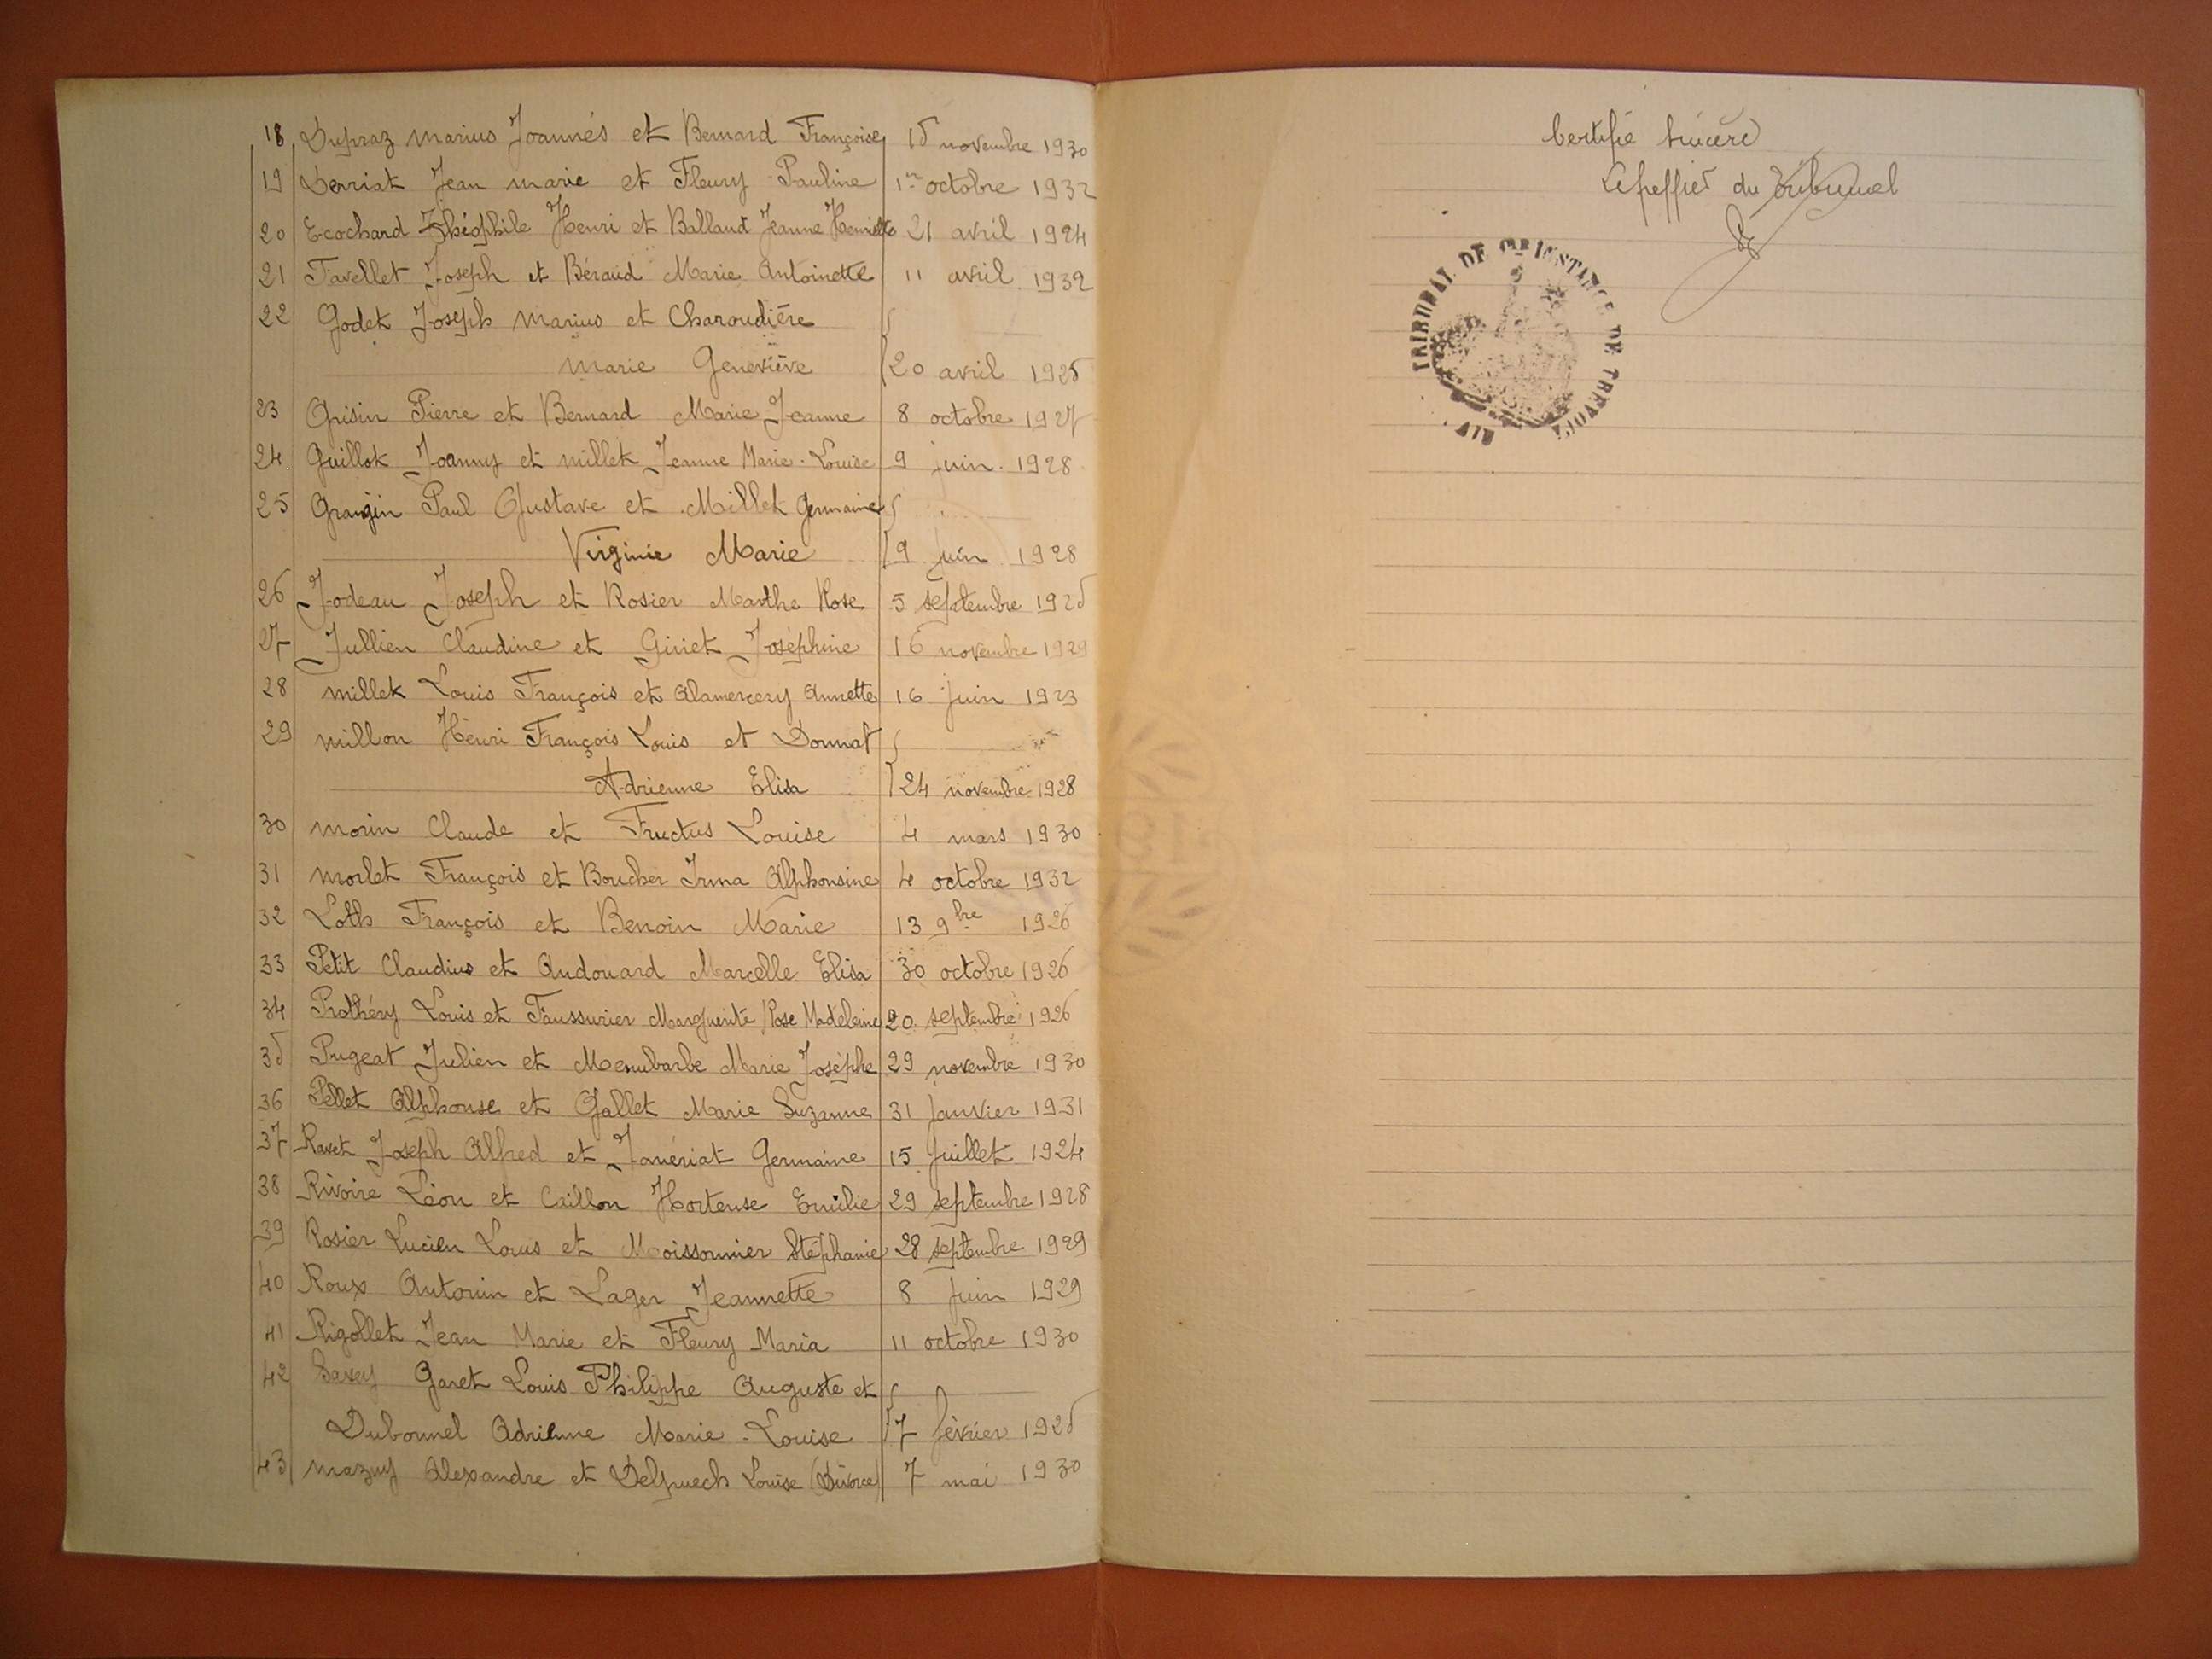 18 Dupraz Marius Joannés et Bernard Françoise 15 novembre 1930
19 Derriat Jean Marie et Fleury Pauline 1er octobre 1932
20 Ecochard Théophile Henri et Balland Jeanne Henriette 21 avril 1924
21 Favellet Joseph et Béraud Marie Antoinette 11 avril 1932
22 Godet Joseph Marius et Charoudière
Marie Geneviève 20 avril 1925
23 Grisin Pierre et Bernard Marie Jeanne 8 octobre 1927
24 Guillot Joanny et Millet Jeanne Marie-Louise 9 juin 1928
25 Grangin Paul Gustave et Millet Germaine
Virginie Marie 9 juin 1928
26 Jodeau Joseph et Rosier Marthe Rose 5 septembre 1925
27 Jullien Claudine et Giriet Joséphine 16 novembre 1929
28 Millet Louis François et Alamercery Annette 16 juin 1923
29 Millon Henri François Louis et Donnat
Adrienne Elisa 24 novembre 1928
30 Morin Claude et Fructus Louise 4 mars 1930
31 Morlet François et Boucher Irma Alphonsine 4 octobre 1932
32 Loth François et Benoin Marie 13 9bre 1926
33 Petit Claudius et Audouard Marcelle Elisa 30 octobre 1926
34 Prothéry Louis et Faussurier Marguerite Rose Madeleine 20 septembre 1926
35 Pugeat Julien et Menubarbe Marie Josèphe 29 novembre 1930
36 Pellet Alphonse et Gallet Marie Suzanne 31 Janvier 1931
37 Ravet Joseph Alfred et Janériat Germaine 15 Juillet 1924
38 Rivoire Léon et Caillon Hortense Emilie 29 septembre 1928
39 Rosier Lucien Louis et Moissonnier Stéphanie 28 septembre 1929
40 Roux Antonin et Lager Jeannette 8 Juin 1929
41 Rigollet Jean Marie et Fleury Maria 11 octobre 1930
42 Savey Garet Louis Philippe Auguste et
Dubonnel Adrienne Marie-Louise 7 février 1925
43 Mazuy Alexandre et Delpuech Louise (Divorce) 7 mai 1930
Certifié sincère
Le greffier du Tribunal
TRIBUNAL DE 1RE INSTANCE DE TREVOUX